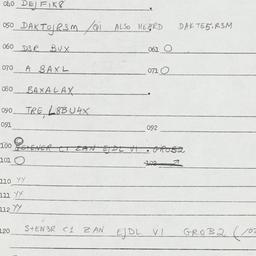 040 DEJFIK8
050 DAKTOJRSM /QI ALSO HEARD DAKTE5.RSM
060 DSR BUX 061 O
070 A BAXL 071 O
080 BAXALAX
090 TRE, L8BU4X
091 092
100 STENER C1 ZAN EJDL VI . GRUB2
101 O 102
110 YY
111 YY
112 YY
120 STEN3R C1 ZAN EJDL VI GROB2 (102